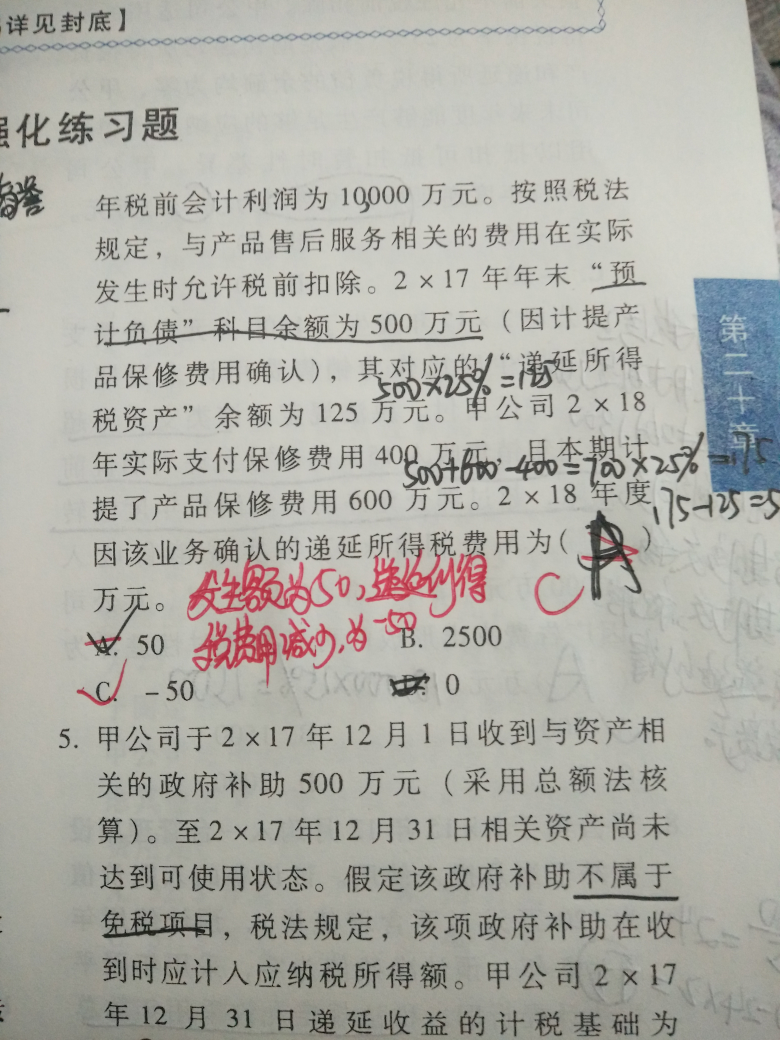 详见封底】
强化练习题
年税前会计利润为 10,000 万元。按照税法
规定，与产品售后服务相关的费用在实际
发生时允许税前扣除。2×17 年年末“预
计负债”科目余额为 500 万元（因计提产
品保修费用确认），其对应的“递延所得
500×25%=125
税资产”余额为 125 万元。甲公司 2×18
年实际支付保修费用 400 万元，且本期计
500+600-400=700×25%=175
提了产品保修费用 600 万元。2×18 年度
175-125=5
因该业务确认的递延所得税费用为（ ）
万元。
发生额为50,递延所得
税费用减少,为-50
C
A. 50
B. 2500
C. －50
D. 0
5. 甲公司于 2×17 年 12 月 1 日收到与资产相
关的政府补助 500 万元（采用总额法核
算）。至 2×17 年 12 月 31 日相关资产尚未
达到可使用状态。假定该政府补助不属于
免税项目，税法规定，该项政府补助在收
到时应计入应纳税所得额。甲公司 2×17
年 12 月 31 日递延收益的计税基础为
第二十章